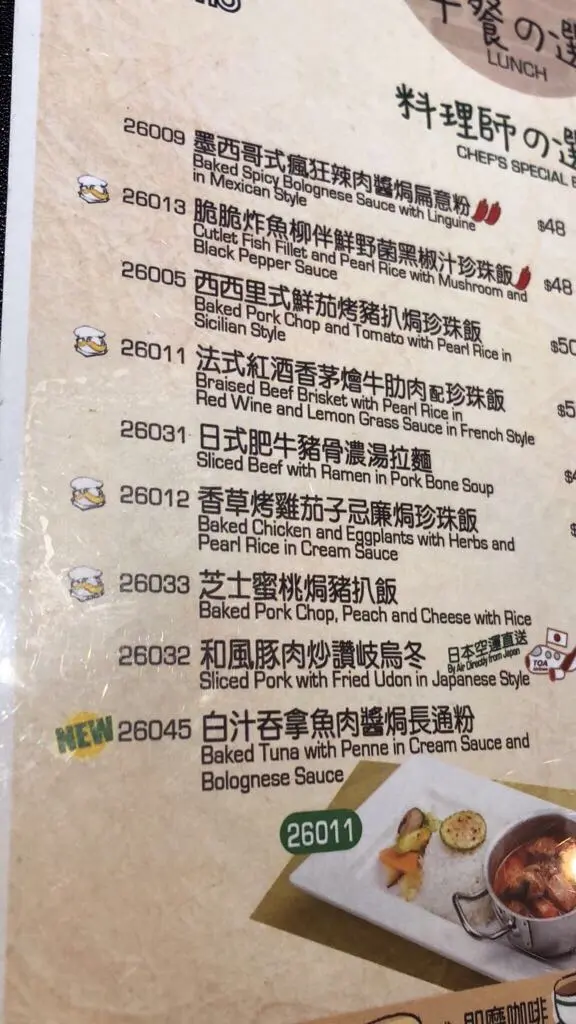 午餐の選
LUNCH
料理師の選
CHEF'S SPECIAL
26009 墨西哥式瘋狂辣肉醬焗扁意粉 $48
Baked Spicy Bolognese Sauce with Linguine
in Mexican Style
26013 脆脆炸魚柳伴鮮野菌黑椒汁珍珠飯 $48
Cutlet Fish Fillet and Pearl Rice with Mushroom and
Black Pepper Sauce
26005 西西里式鮮茄烤豬扒焗珍珠飯 $50
Baked Pork Chop and Tomato with Pearl Rice in
Sicilian Style
26011 法式紅酒香茅燴牛肋肉配珍珠飯 $5
Braised Beef Brisket with Pearl Rice in
Red Wine and Lemon Grass Sauce in French Style
26031 日式肥牛豬骨濃湯拉麵
Sliced Beef with Ramen in Pork Bone Soup
26012 香草烤雞茄子忌廉焗珍珠飯
Baked Chicken and Eggplants with Herbs and
Pearl Rice in Cream Sauce
26033 芝士蜜桃焗豬扒飯
Baked Pork Chop, Peach and Cheese with Rice
26032 和風豚肉炒讚岐烏冬 日本空運直送
By Air Directly from Japan
TOA
Sliced Pork with Fried Udon in Japanese Style
NEW 26045 白汁吞拿魚肉醬焗長通粉
Baked Tuna with Penne in Cream Sauce and
Bolognese Sauce
26011
即磨咖啡